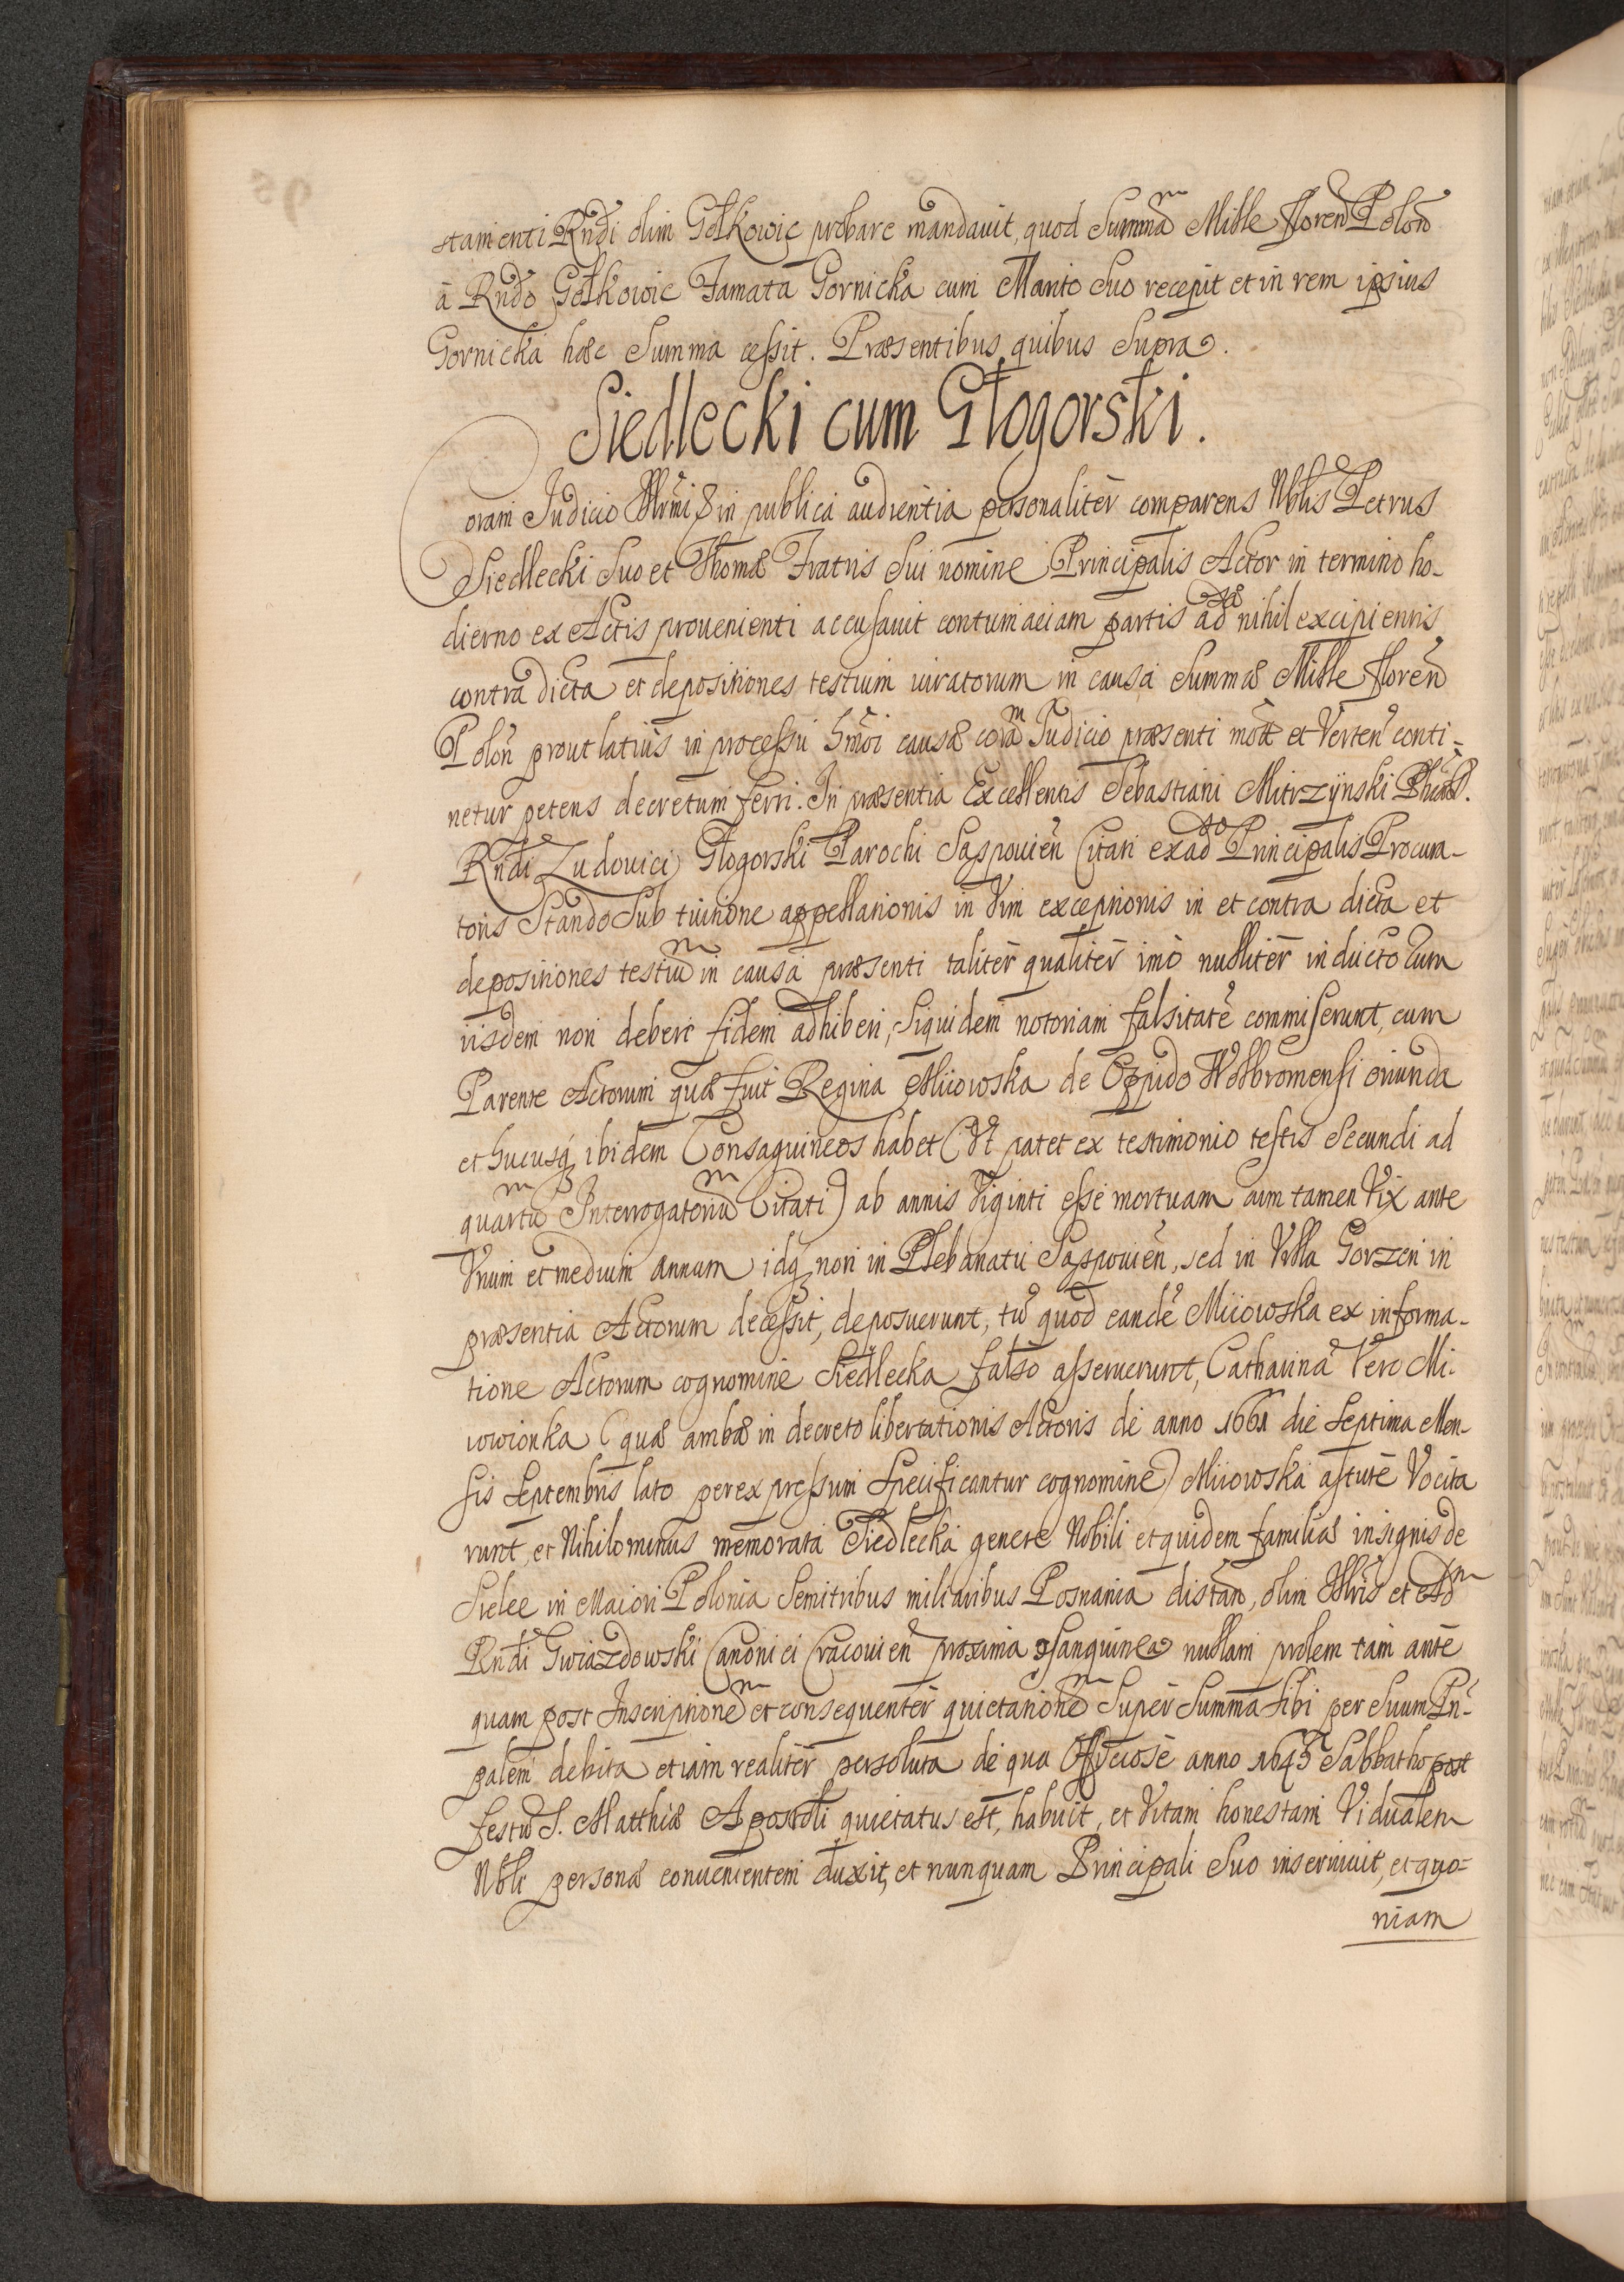 stamenti Rndi olim Gołkowic probare mandauit, quod Summam Mille floren Polon
à Rndo Gołkowic Famata Gornicka cum Marito Suo recepit et in rem ipsius
Gornicka hæc Summa cessit. Præsentibus quibus Supra.
Siedlecki cum Głogorski.
Coram Iudicio Illrmi S in publica audientia personalitèr comparens Nblis Petrus
Siedlecki Suo et Thomæ Fratris Sui nomine Principalis Actor in termino ho-
dierno ex Actis prouenienti accusauit contumaciam partis adsæ nihil excipientis
contra dicta et depositiones testium iuratorum in causa Summæ Mille floren
Polon prout latius in processu hmoi causæ coram Iudicio præsenti mot et Verten conti-
netur petens decretum ferri. In præsentia Excellentis Sebastiani Mitrzynski Phiæ D.
Rndi Ludouici Głogorski Parochi Saspouien Citati ex adso Principalis Procura-
toris Stando Sub tuitione appellationis in Vim exceptionis in et contra dicta et
depositiones testium in causa præsenti talitèr qualitèr imò nullitèr inducto Cum
iisdem non debere fidem adhiberi, Siquidem notoriam falsitatē commiserunt, cum
Parente Actorum quæ fuit Regina Miiowska de Oppido Wolbromensi oriunda
et hucusq ibidem Consaguineos habet (Vt patet ex testimonio testis Secundi ad
quartum Interrogatorium Citati) ab annis Viginti esse mortuam cum tamen Vix ante
Vnum et medium annum idq non in Plebanatu Saspouien, sed in Villa Gorzen in
præsentia Actorum decessit, deposuerunt, tū quod eandē Miiowska ex informa-
tione Actorum cognomine Siedlecka falso asseruerunt, Catharina Vero Mi-
iowionka (quæ ambæ in decreto libertationis Actoris de anno 1661 die Septima Men-
sis Septembris lato per expressum Specificantur cognomine) Miiowska astutè Vocita
runt, et Nihilominus memorata Siedlecka genere Nobili et quidem familiæ insignis de
Sielec in Maiori Polonia Semitribus miliaribus Posnania distan, olim Illris et Adm
Rndi Gwiazdowski Canonici Cracouien proxima Consanguinea nullam prolem tam antè
quam post Inscriptionem et consequentèr quietationem Supèr Summa Sibi per Suum Prin-
palem debita etiam realitèr persoluta de qua Officiosè anno 1645 Sabbatho post
festū S. Matthiæ Apostoli quietatus est, habuit, et Vitam honestam Vidualem
Nbli personæ conuenientem duxit, et nunquam Principali Suo inseruiuit, et quo-
niam